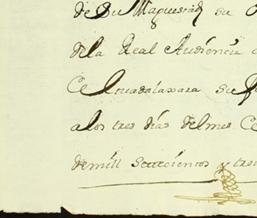 de Su Magestad su
dela Real Audiencia
Guadalaxara
a los tres dias del mes
de mill setecientos y tre